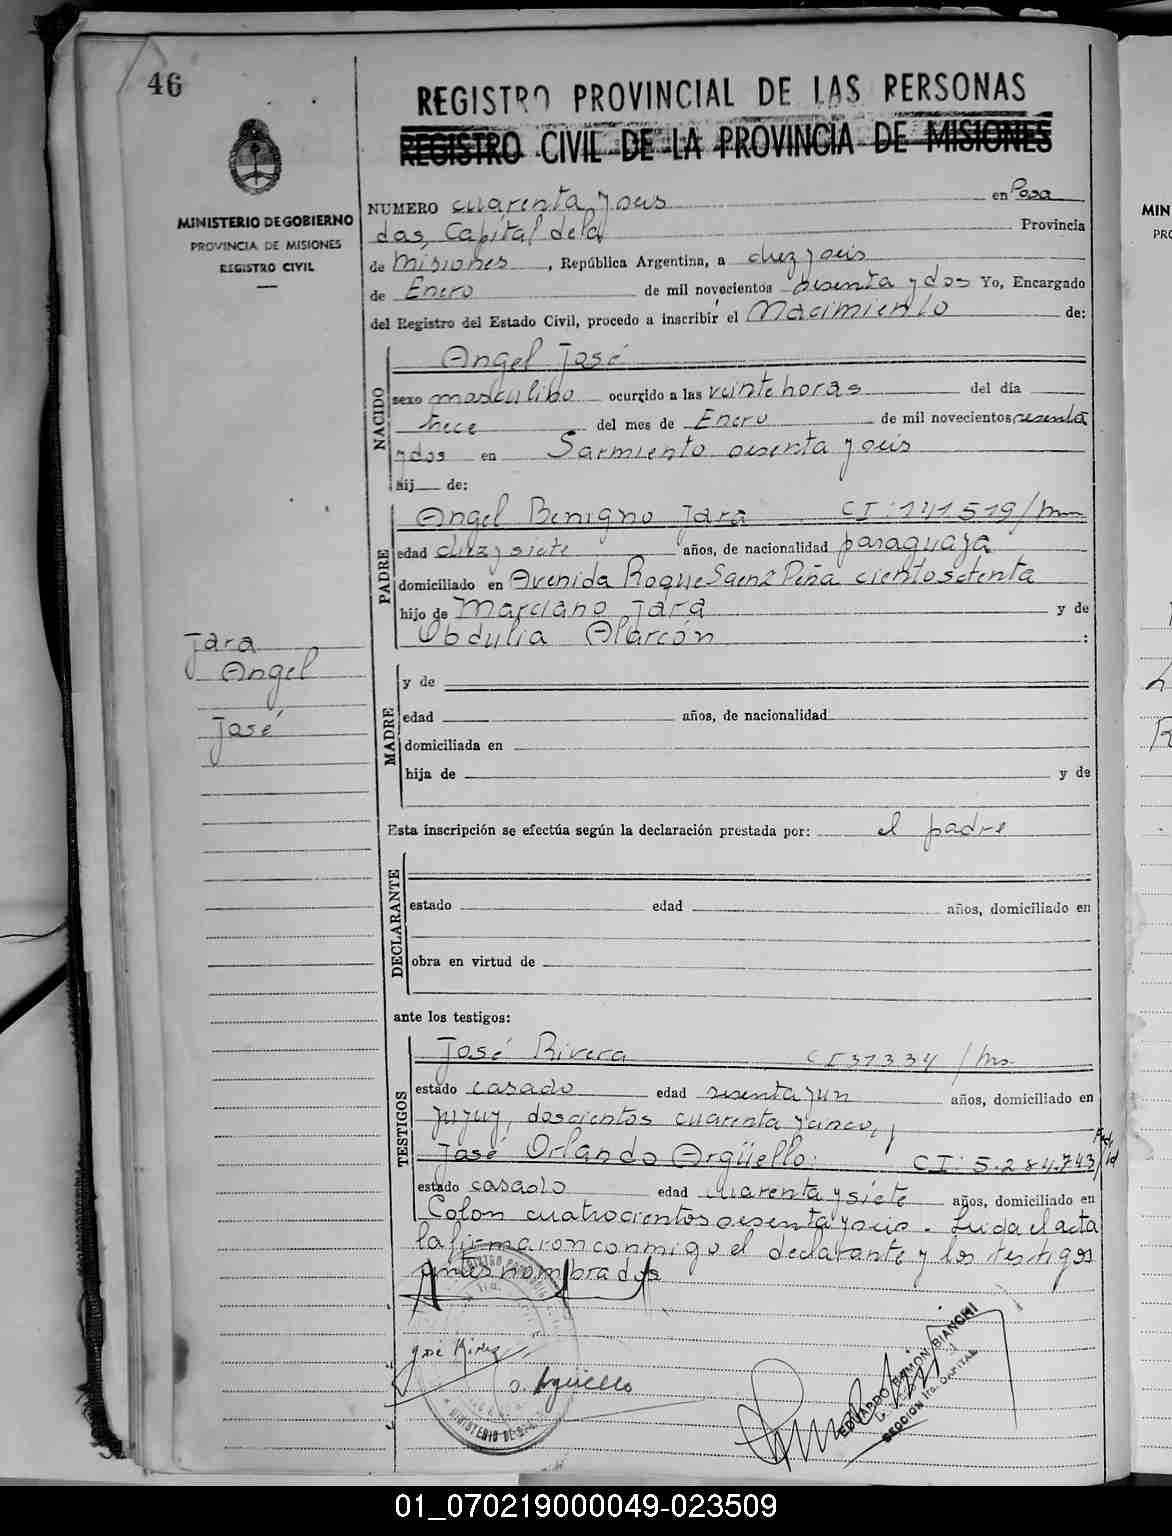 46
REGISTRO PROVINCIAL DE LAS PERSONAS
REGISTRO CIVIL DE LA PROVINCIA DE MISIONES
MINISTERIO DE GOBIERNO
PROVINCIA DE MISIONES
REGISTRO CIVIL
NUMERO cuarenta y seis en Posa
das, Capital de la Provincia
de Misiones, República Argentina, a diez y seis
de Enero de mil novecientos sesenta y dos Yo, Encargado
del Registro del Estado Civil, procedo a inscribir el Nacimiento de:
NACIDO
Angel José
sexo masculino ocurrido a las veinte horas del día
trece del mes de Enero de mil novecientos sesenta
y dos en Sarmiento sesenta y seis
hij de:
PADRE
Angel Benigno Jara CI: 141519/
edad diez y siete años, de nacionalidad paraguaya
domiciliado en Avenida Roque Saenz Peña ciento setenta
hijo de Marciano Jara y de
Obdulia Alarcón :
Jara
Angel
José
MADRE
y de
edad años, de nacionalidad
domiciliada en
hija de y de
Esta inscripción se efectúa según la declaración prestada por: el padre
DECLARANTE
estado edad años, domiciliado en
obra en virtud de
ante los testigos:
TESTIGOS
José Rivera CI 31334/
estado casado edad sesenta y un años, domiciliado en
Jujuy, doscientos cuarenta y cinco,
José Orlando Argüello: CI: 5.284.743
estado casado edad cuarenta y siete años, domiciliado en
Colon cuatrocientos sesenta y seis. Leida el acta
la firmaron conmigo el declarante y los testigos
antes nombrados
José Rivera
O. Argüello
EDUARDO RAMON BIANCHI
SECCION 1ra. CAPITAL
MINISTERIO DE
01_070219000049-023509